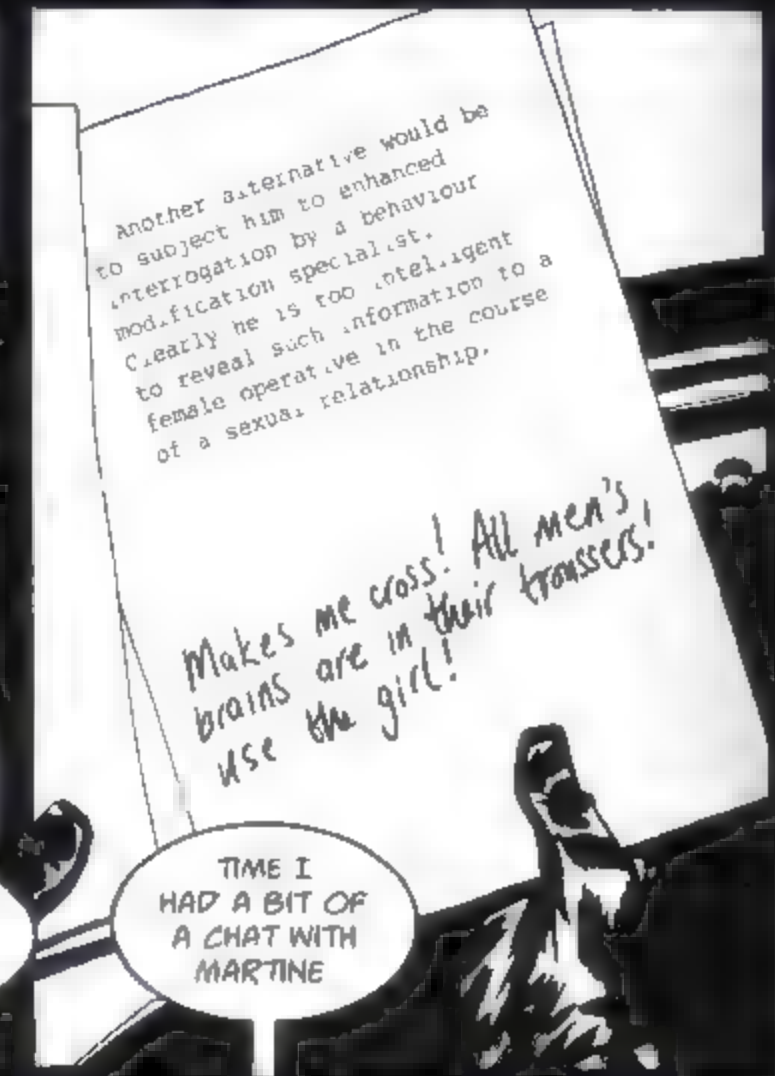 Another alternative would be
to subject him to enhanced
interrogation by a behaviour
modification specialist.
Clearly he is too intelligent
to reveal such information to a
female operative in the course
of a sexual relationship.
Makes me cross! All men's
brains are in their troussers!
use the girl!
TIME I
HAD A BIT OF
A CHAT WITH
MARTINE